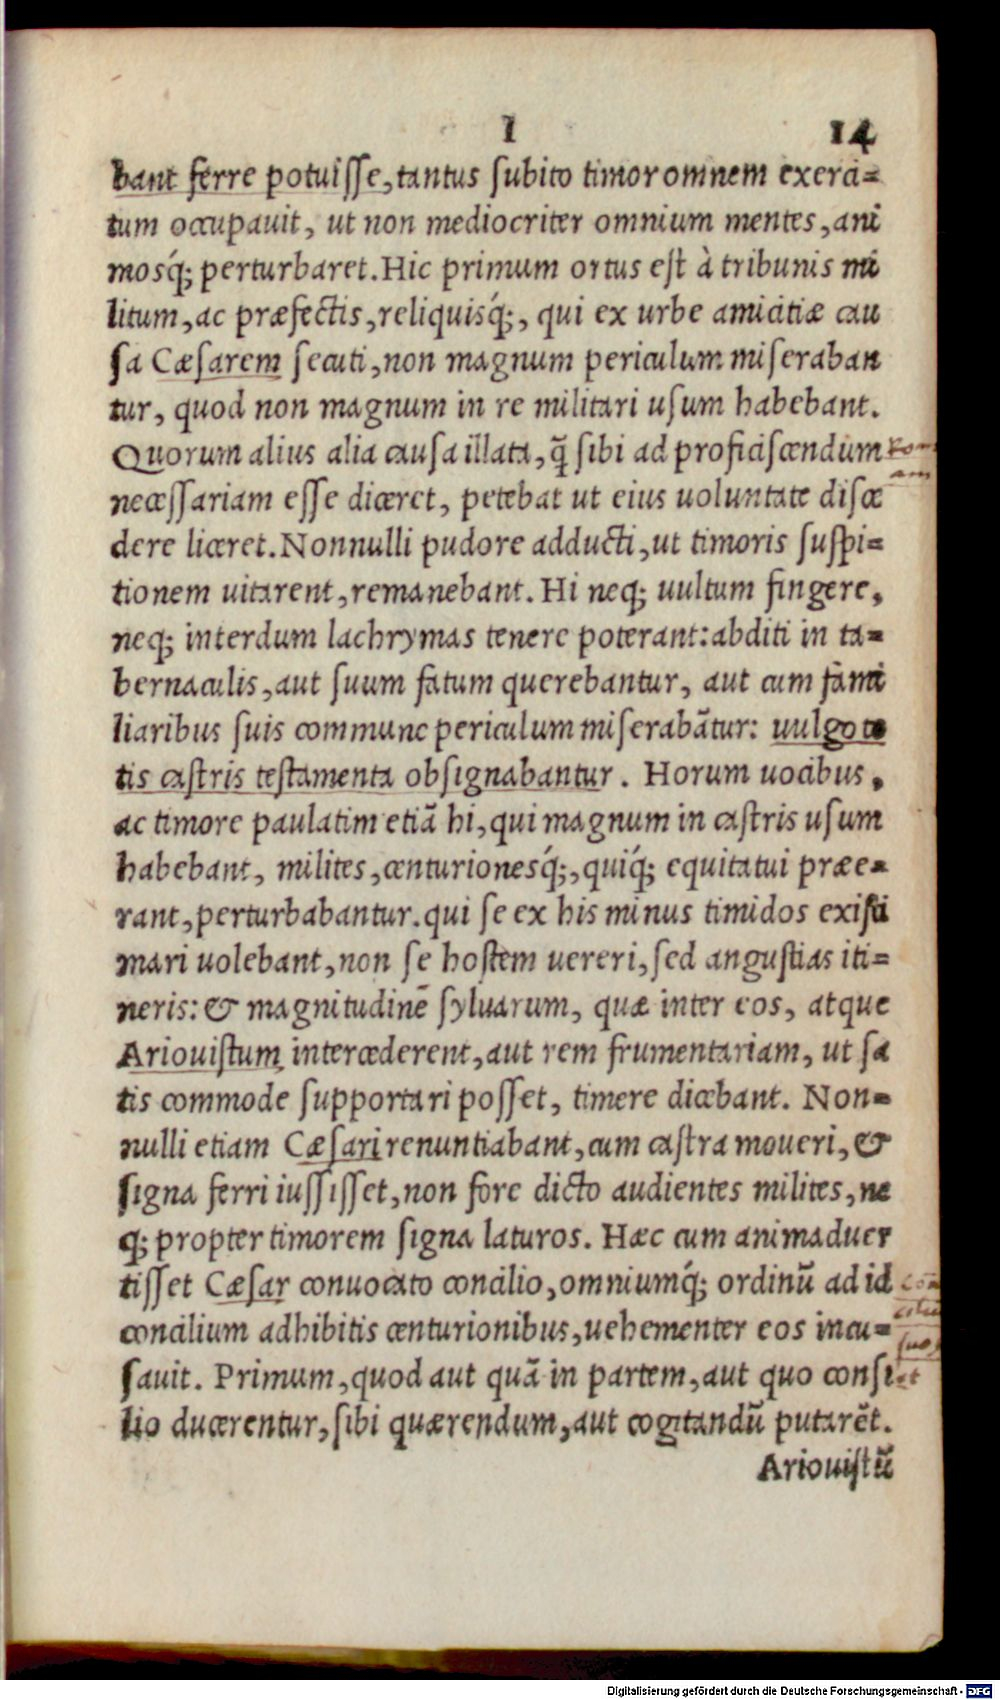 I 14
bant ferre potuisse, tantus subito timor omnem exerci=
tum occupauit, ut non mediocriter omnium mentes, ani
mosq́; perturbaret. Hic primum ortus est à tribunis mi
litum, ac præfectis, reliquisq́;, qui ex urbe amicitiæ cau
sa Cæsarem secuti, non magnum periculum miseraban
tur, quod non magnum in re militari usum habebant.
Quorum alius alia causa illata, q̃ sibi ad proficiscendum
necessariam esse diceret, petebat ut eius uoluntate disce
dere liceret. Nonnulli pudore adducti, ut timoris suspi=
tionem uitarent, remanebant. Hi neq; uultum fingere,
neq; interdum lachrymas tenere poterant: abditi in ta=
bernaculis, aut suum fatum querebantur, aut cum fami
liaribus suis commune periculum miserabãtur: uulgo to
tis castris testamenta obsignabantur. Horum uocibus,
ac timore paulatim etiã hi, qui magnum in castris usum
habebant, milites, centurionesq́;, quiq́; equitatui præe=
rant, perturbabantur. qui se ex his minus timidos existi
mari uolebant, non se hostem uereri, sed angustias iti=
neris: & magnitudinẽ syluarum, quæ inter eos, atque
Ariouistum intercederent, aut rem frumentariam, ut sa
tis commode supportari posset, timere dicebant. Non=
nulli etiam Cæsari renuntiabant, cum castra moueri, &
signa ferri iussisset, non fore dicto audientes milites, ne
q; propter timorem signa laturos. Hæc cum animaduer
tisset Cæsar conuocato concilio, omniumq́; ordinũ ad id
concilium adhibitis centurionibus, uehementer eos incu=
sauit. Primum, quod aut quã in partem, aut quo consi
lio ducerentur, sibi quærendum, aut cogitandũ putarẽt.
Ariouistũ
Digitalisierung gefördert durch die Deutsche Forschungsgemeinschaft - DFG